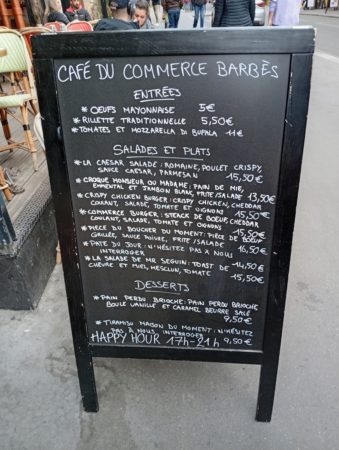 CAFÉ DU COMMERCE BARBÈS
ENTRÉES
* OEUFS MAYONNAISE 5€
* RILLETTE TRADITIONNELLE 5,50€
* TOMATES ET MOZZARELLA DI BUFALA 11€
SALADES ET PLATS
* LA CAESAR SALADE : ROMAINE, POULET CRISPY,
SAUCE CAESAR, PARMESAN 15,50€
* CROQUE MONSIEUR OU MADAME : PAIN DE MIE,
EMMENTAL ET JAMBON BLANC, FRITE/SALADE 13,50€
* CRISPY CHICKEN BURGER : CRISPY CHICKEN, CHEDDAR
COULANT, SALADE, TOMATE ET OIGNONS 15,50€
* COMMERCE BURGER : STEACK DE BOEUF, CHEDDAR
COULANT, SALADE, TOMATE ET OIGNONS 15,50€
* PIÈCE DU BOUCHER DU MOMENT : PIÈCE DE BOEUF
GRILLÉE, SAUCE POIVRE, FRITE/SALADE 16,50€
* PATE DU JOUR : N'HÉSITEZ PAS À NOUS
INTERROGER 14,50€
* LA SALADE DE MR SEGUIN : TOAST DE
CHÈVRE ET MIEL, MESCLUN, TOMATE 15,50€
DESSERTS
* PAIN PERDU BRIOCHE : PAIN PERDU BRIOCHE
BOULE VANILLE ET CARAMEL BEURRE SALÉ
9,50€
* TIRAMISU MAISON DU MOMENT : N'HÉSITEZ
PAS À NOUS INTERROGER 9,50€
HAPPY HOUR 17h-21h